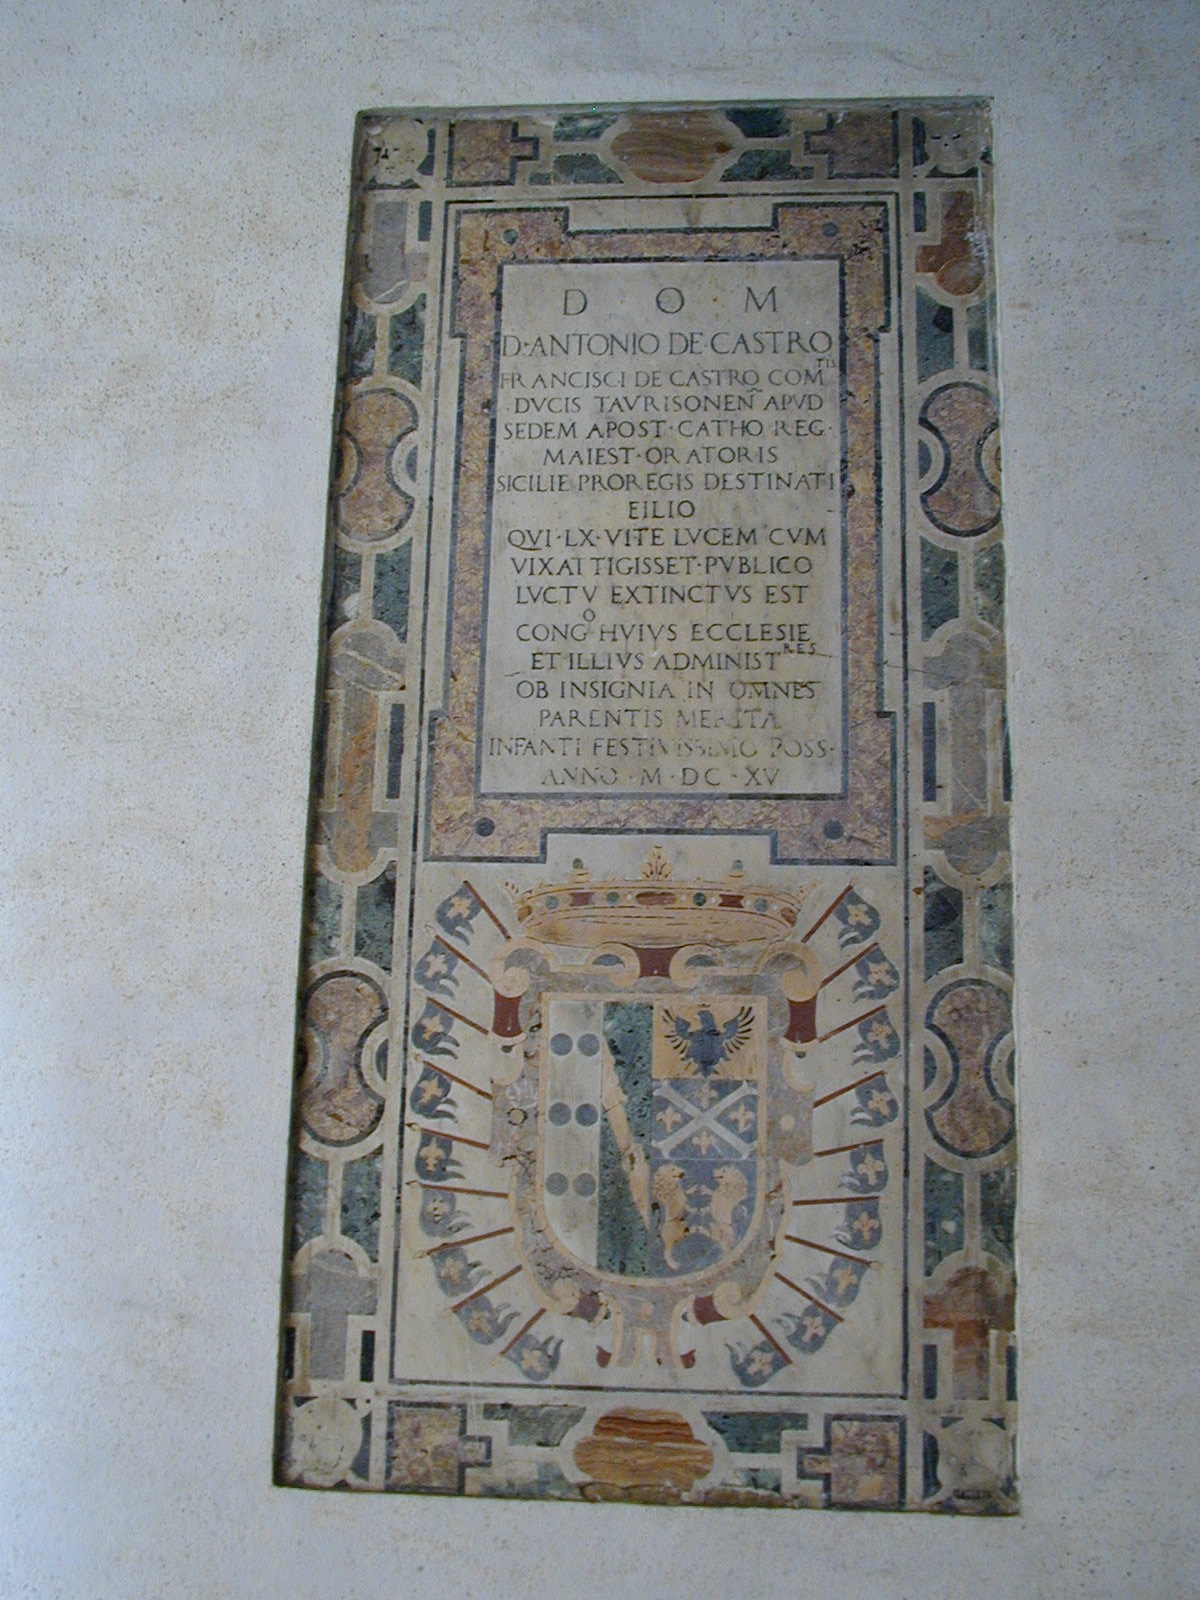 D O M
D·ANTONIO DE·CASTRO
FRANCISCI DE CASTRO COM^TIS
DVCIS TAVRISONEÑ APVD
SEDEM APOST·CATHO REG·
MAIEST·ORATORIS
SICILIE PROREGIS DESTINATI
EILIO
QVI·LX·VITE LVCEM CVM
VIXATTIGISSET·PVBLICO
LVCTV EXTINCTVS EST
CONG^O HVIVS ECCLESIE
ET ILLIVS ADMINIST^RES
OB INSIGNIA IN OMNES
PARENTIS MERITA
INFANTI FESTIVISSIMO POSS·
ANNO·M·DC·XV